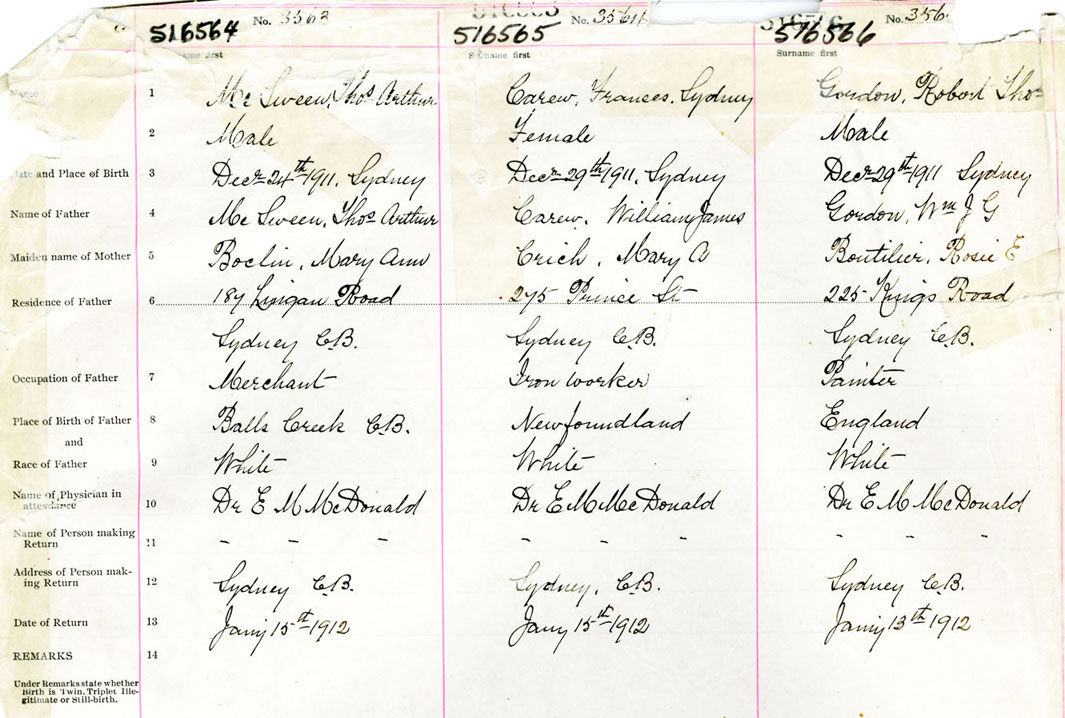 No. 3563
516564
No. 3564
516565
No. 356
516566
Surname first
Name 1 Mc Sween, Thos Arthur Carew, Frances, Sydney Gordon, Robert Thos
2 Male Female Male
Date and Place of Birth 3 Decr 24th 1911, Sydney Decr 29th 1911, Sydney Decr 29th 1911 Sydney
Name of Father 4 Mc Sween, Thos Arthur Carew, William James Gordon, Wm J G
Maiden name of Mother 5 Boclin, Mary Ann Crich, Mary A Boutilier, Rosie E
Residence of Father 6 187 Lingan Road 275 Prince St 225 Kings Road
Sydney C.B. Sydney C.B. Sydney C.B.
Occupation of Father 7 Merchant Iron worker Painter
Place of Birth of Father 8 Balls Creek C.B. Newfoundland England
and
Race of Father 9 White White White
Name of Physician in
attendance 10 Dr E M McDonald Dr E M McDonald Dr E M McDonald
Name of Person making
Return 11 - - - - - - - - -
Address of Person mak-
ing Return 12 Sydney C.B. Sydney, C.B. Sydney C.B.
Date of Return 13 Jany 15th 1912 Jany 15th 1912 Jany 13th 1912
REMARKS 14
Under Remarks state whether
Birth is Twin, Triplet Ille-
gitimate or Still-birth.